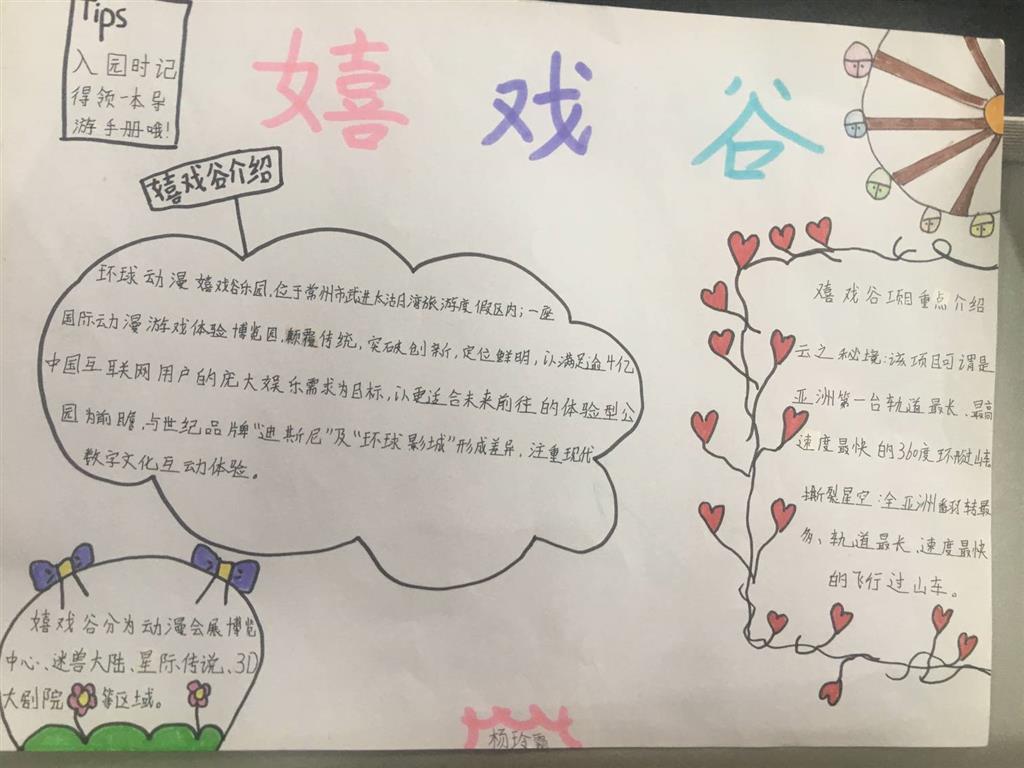 Tips
入园时记
得领一本导
游手册哦!
嬉戏谷
嬉戏谷介绍
环球动漫嬉戏谷乐园,位于常州市武进太湖湾旅游度假区内;一座
国际动漫游戏体验博览园,颠覆传统,突破创新,定位鲜明,以满足逾4亿
中国互联网用户的庞大娱乐需求为目标,以更适合未来前往的体验型公
园为前瞻,与世纪品牌“迪斯尼”及“环球影城”形成差异,注重现代
数字文化互动体验。
嬉戏谷项目重点介绍
云之秘境:该项目可谓是
亚洲第一台轨道最长、最高
速度最快的360度环形过山车
撕裂星空:全亚洲翻转最
多、轨道最长、速度最快
的飞行过山车。
嬉戏谷分为动漫会展博览
中心、迷兽大陆、星际传说、3D
大剧院等区域。
杨玲